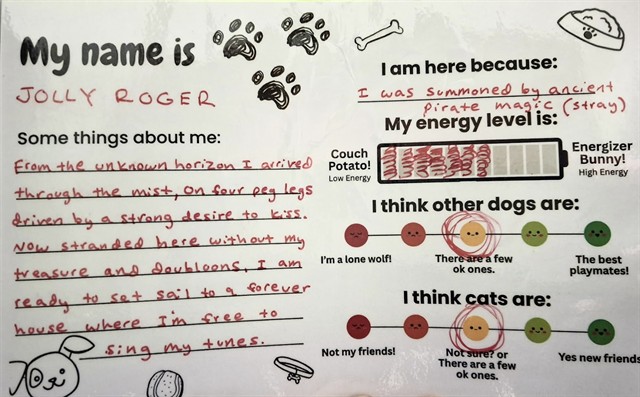 My name is
JOLLY ROGER
Some things about me:
From the unknown horizon I arrived
through the mist, on four peg legs
driven by a strong desire to kiss.
Now stranded here without my
treasure and doubloons, I am
ready to set sail to a forever
house where I'm free to
sing my tunes.
I am here because:
I was summoned by ancient
pirate magic (stray)
My energy level is:
Couch
Potato!
Low Energy
Energizer
Bunny!
High Energy
I think other dogs are:
I'm a lone wolf!
There are a few
ok ones.
The best
playmates!
I think cats are:
Not my friends!
Not sure? or
There are a few
ok ones.
Yes new friends